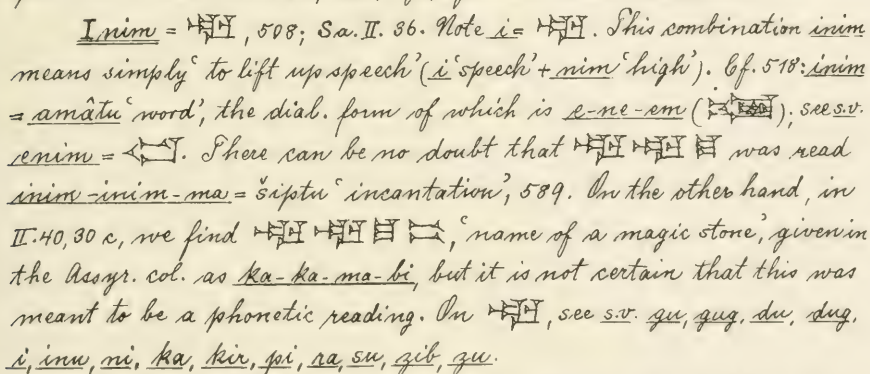 Inim = 𒅗, 508; Sa. II. 36. Note i = 𒅗. This combination inim
means simply ‘to lift up speech’ (i ‘speech’ + nim ‘high’). Cf. 518: inim
= amâtu ‘word’, the dial. form of which is e-ne-em ( ); see s.v.
enim = . There can be no doubt that 𒅗 𒅗 𒈠 was read
inim-inim-ma = šiptu ‘incantation’, 589. On the other hand, in
II. 40, 30 c, we find 𒅗 𒅗 𒈠 𒁉, ‘name of a magic stone’, given in
the Assyr. col. as ka-ka-ma-bi, but it is not certain that this was
meant to be a phonetic reading. On 𒅗, see s.v. gu, gug, du, dug,
i, inu, ni, ka, kir, pi, ra, su, zib, zu.